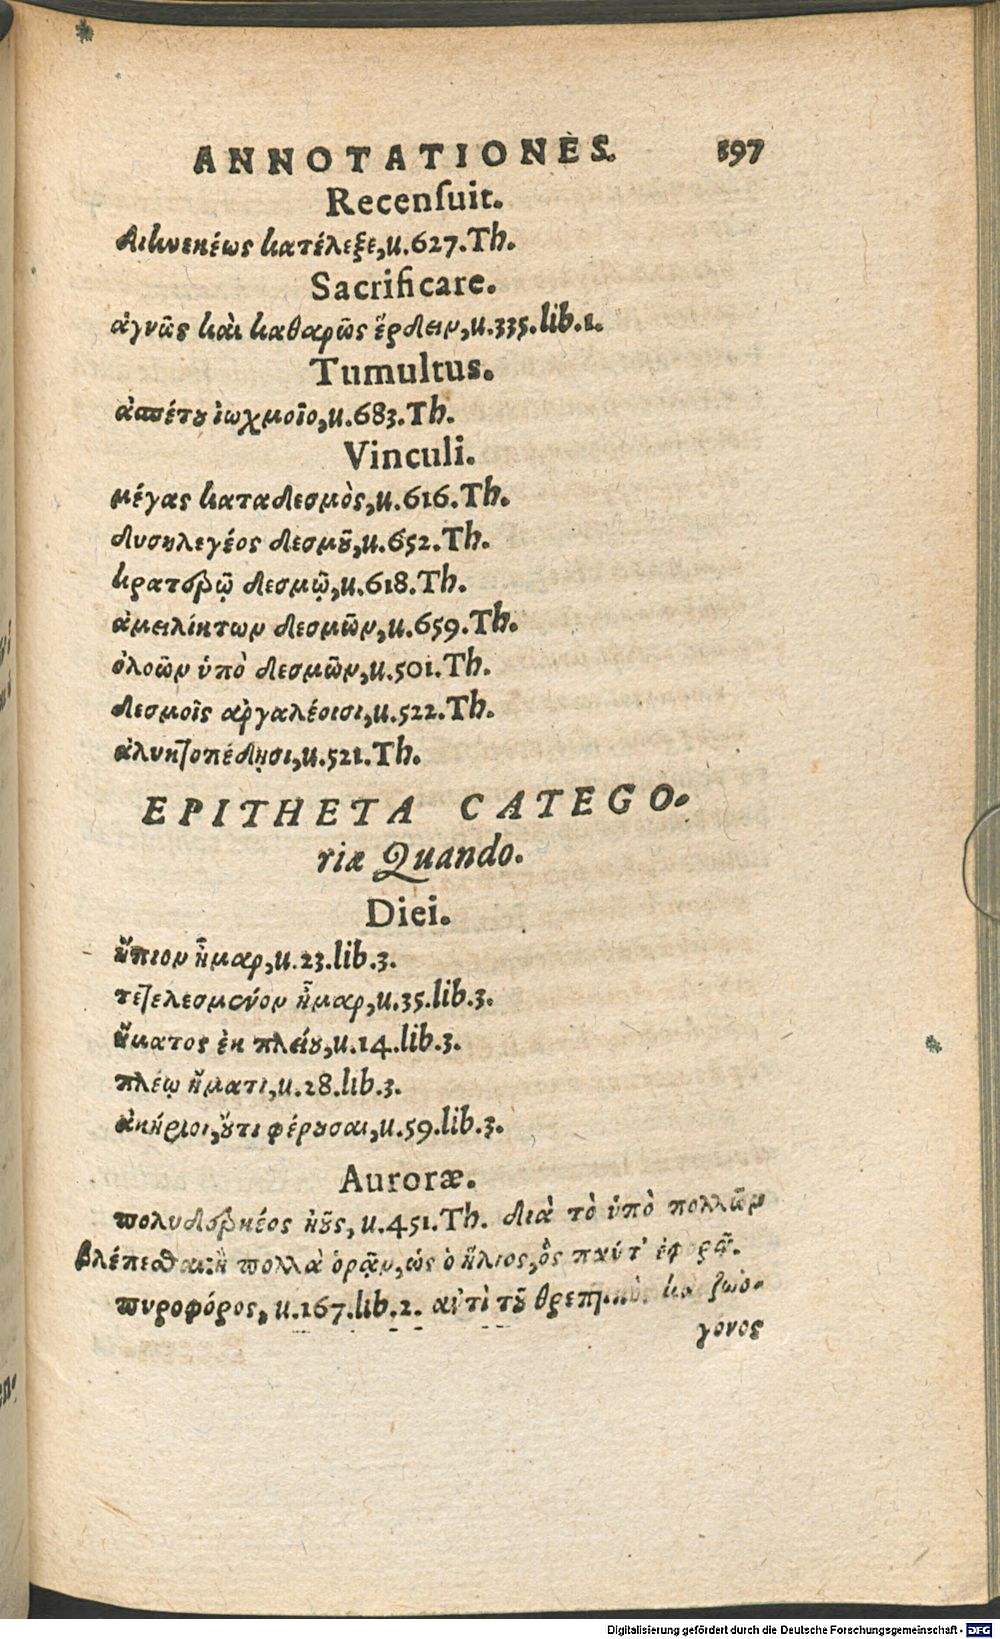 ANNOTATIONES. 197
Recenſuit.
διηνεκέως κατέλεξε, u.627.Th.
Sacrificare.
ἁγνῶς καὶ καθαρῶς ἔρδειν, u.335.lib.1.
Tumultus.
ἀασπέτου ἰωχμοῖο, u.683.Th.
Vinculi.
μέγας κατα δεσμὸς, u.616.Th.
δυσηλεγέος δεσμοῦ, u.652.Th.
κρατερῷ δεσμῷ, u.618.Th.
ἀμειλίκτων δεσμῶν, u.659.Th.
ὀλοῶν ὑπὸ δεσμῶν, u.501.Th.
δεσμοῖς ἀργαλέοισι, u.522.Th.
ἀλυκτοπέδῃσι, u.521.Th.
EPITHETA CATEGO-
riæ Quando.
Diei.
ἤπιον ἦμαρ, u.23.lib.3.
τετελεσμένον ἦμαρ, u.35.lib.3.
ἤματος ἐκ πλείου, u.14.lib.3.
πλέῳ ἤματι, u.28.lib.3.
ἀκήριοι, οὔτι φέρουσαι, u.59.lib.3.
Auroræ.
πολυδερκέος ἠοῦς, u.451.Th. διὰ τὸ ὑπὸ πολλῶν
βλέπεσθαι: ἢ πολλὰ ὁρᾷν, ὡς ὁ ἥλιος, ὃς πάντ' ἐφορᾷ.
πυροφόρος, u.167.lib.2. αὐτὶ τοῦ θρεπτικὸς καὶ ζωο-
γόνος
Digitalisierung gefördert durch die Deutsche Forschungsgemeinschaft - DFG